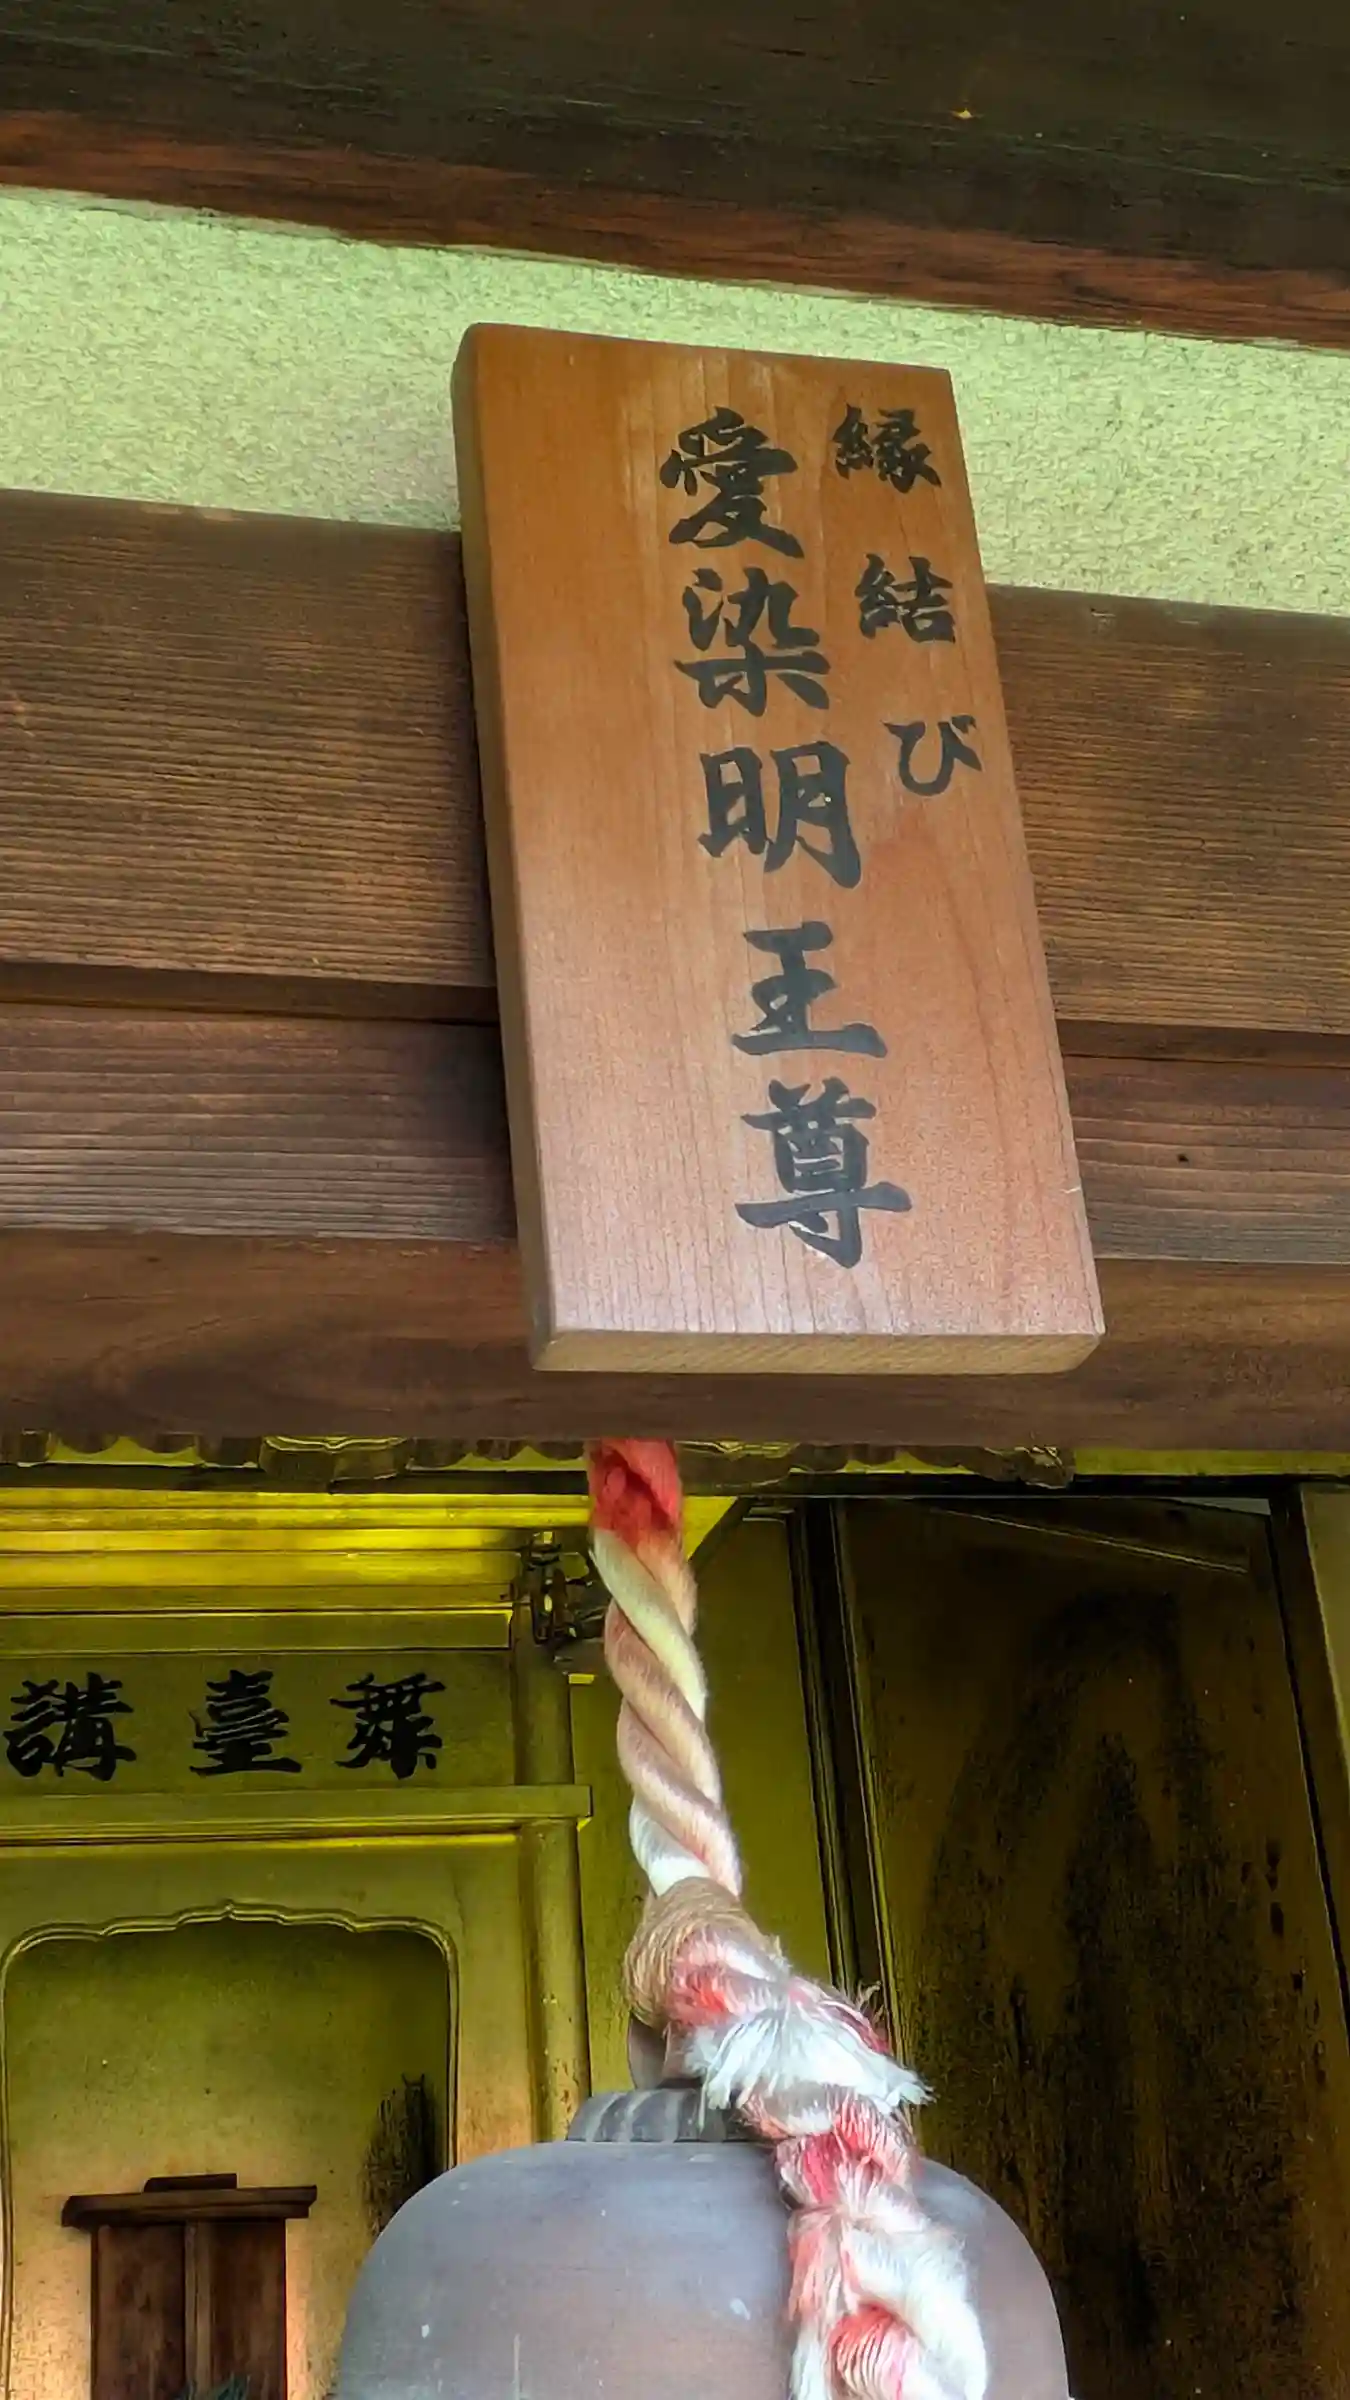 縁結び
愛染明王尊
舞臺講